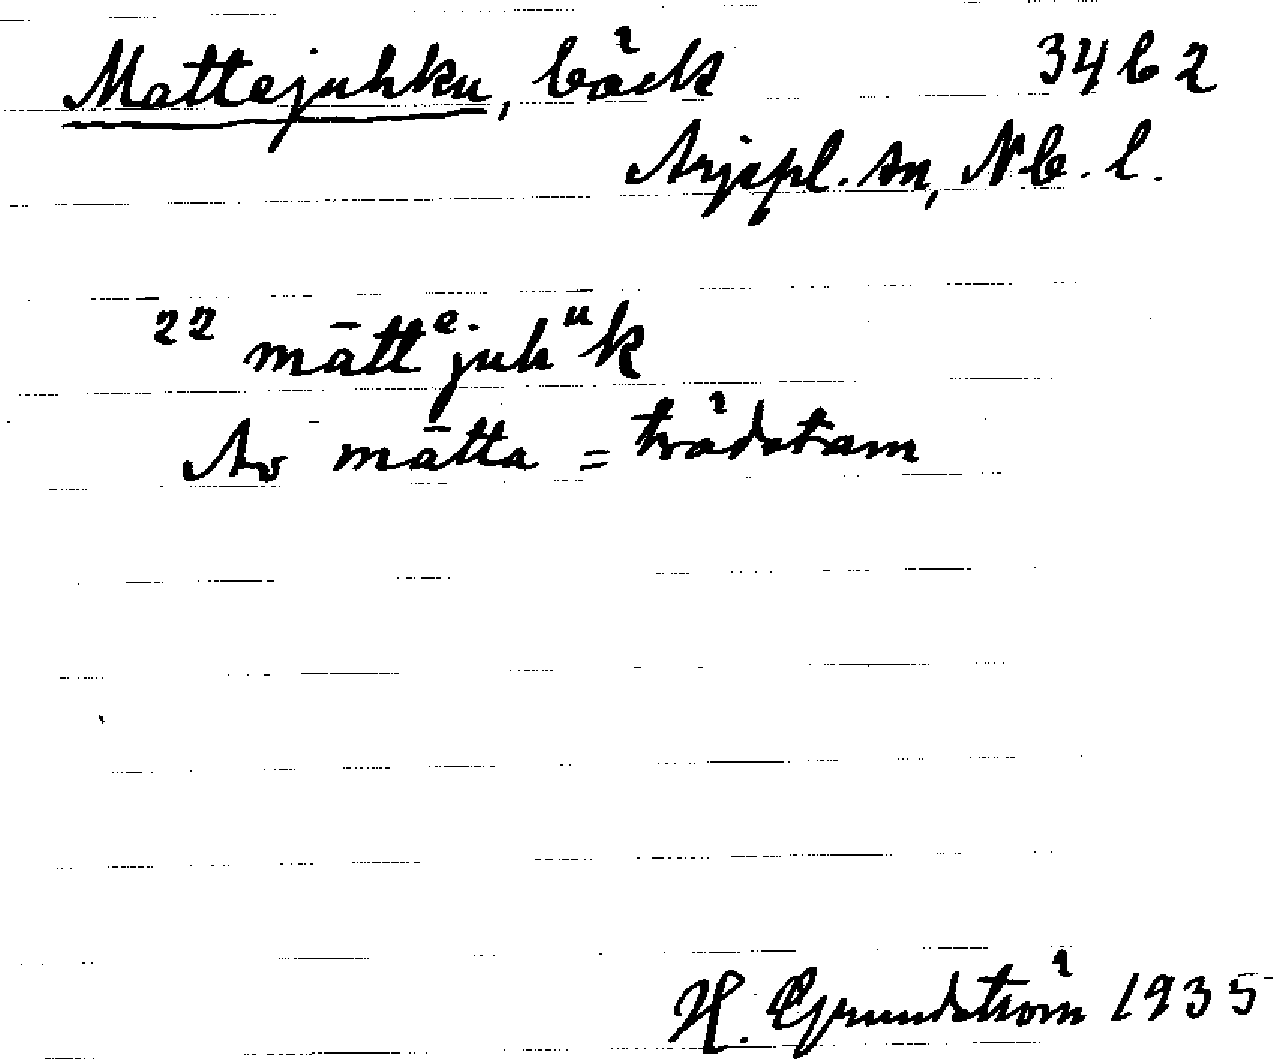 Mattejuhku, bäck 34 b 2
Arjepl. sn, Nb. l.
22 mātt e juh u k
Av mātta = trädstam
H. Grundström 1935